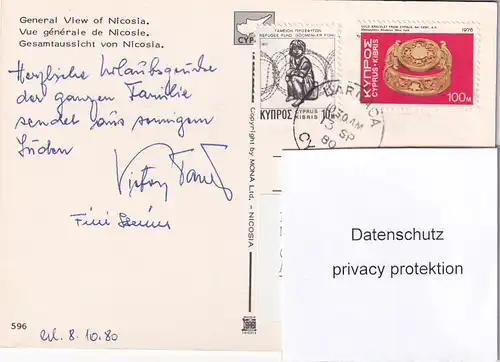 General View of Nicosia.
Vue générale de Nicosie.
Gesamtansicht von Nicosia.
CYP
Herzliche Urlaubsgrüße
der ganzen Familie
sendet aus sonnigem
Süden
Fini
596
erl. 8.10.80
Copyright by MONA Ltd. - NICOSIA
1977
ΤΑΜΕΙΟΝ ΠΡΟΣΦΥΓΩΝ
REFUGEE FUND GÖÇMENLER FONU
ΚΥΠΡΟΣ
CYPRUS
KIBRIS
10M
GOLD BRACELET FROM CYPRUS
1976
ΚΥΠΡΟΣ
CYPRUS-KIBRIS
100M
LARNACA
10.30AM
SP
80
CY
Datenschutz
privacy protektion